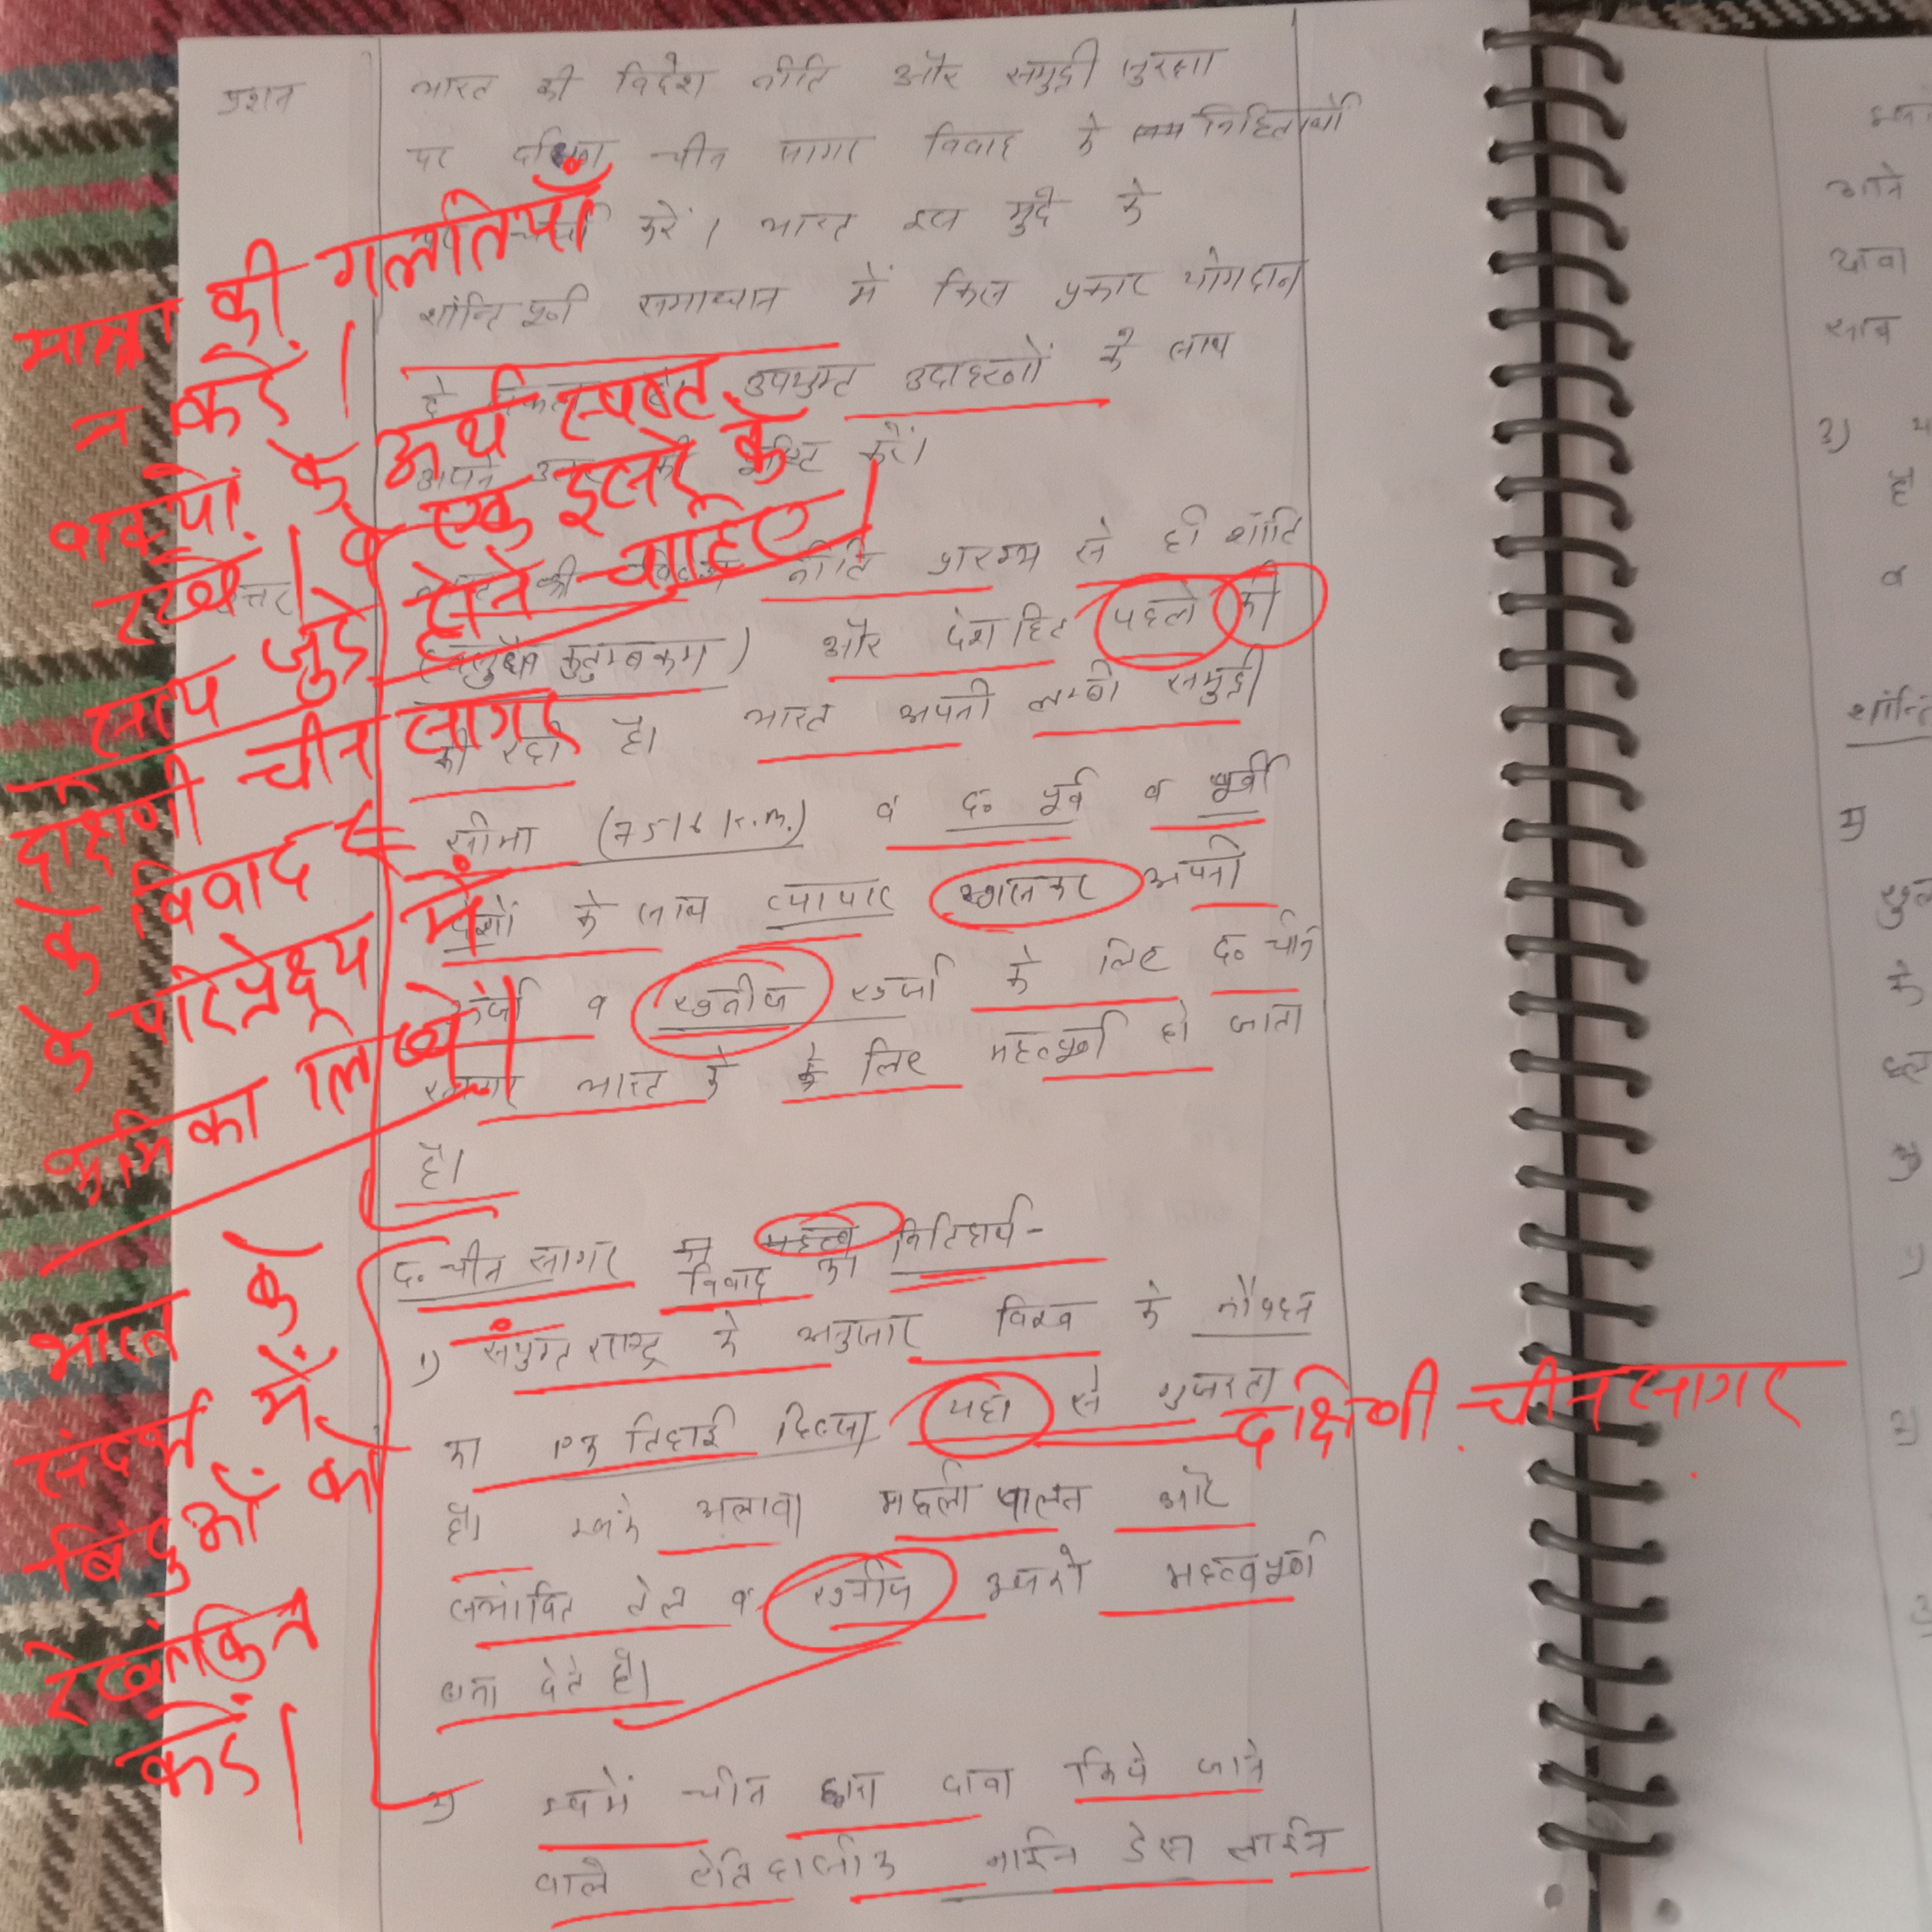 प्रशन
भारत की विदेश नीति और समुद्री सुरक्षा
पर दक्षिण चीन सागर विवाद के निहितार्थो
करें। भारत इस मुद्दे के
शान्तिपूर्ण समाधान में किस प्रकार योगदान
दे सकता है। उपयुक्त उदाहरणों के साथ
अपने उत्तर की पुष्टि करें।
मात्रा की गलतियाँ
न करें।
वाक्यों के अर्थ स्पष्ट
रखें। वे एक दूसरे के
साथ जुड़े होने चाहिए।
दक्षिणी चीन सागर
के विवाद
के परिप्रेक्ष्य में
भूमिका लिखें।
उत्तर
भारत की विदेश नीति प्रारम्भ से ही शांति
(वसुधैव कुटुम्बकम) और देशहित पहले की
की रही है। भारत अपनी लम्बी समुद्री
सीमा (7516 k.m.) व द० पूर्व व पूर्वी
देशों के साथ व्यापार अपनी
ऊर्जा व खनीज के लिए द० चीन
सागर भारत के के लिए महत्वपूर्ण हो जाता
है।
द० चीन सागर विवाद का निहितार्थ-
1) संयुक्त राष्ट्र के अनुसार विश्व के नौवहन
का एक तिहाई हिस्सा यहाँ से गुजरता
दक्षिणी चीन सागर
है। इसके अलावा मछली पालन और
संभावित तेल व खनीज इसको महत्वपूर्ण
बना देते है।
भारत के
संदर्भ में
बिंदुओं को
रेखांकित
करें।
2) इसमें चीन द्वारा दावा किये जाने
वाले ऐतिहासीक नाईन डैस लाईन